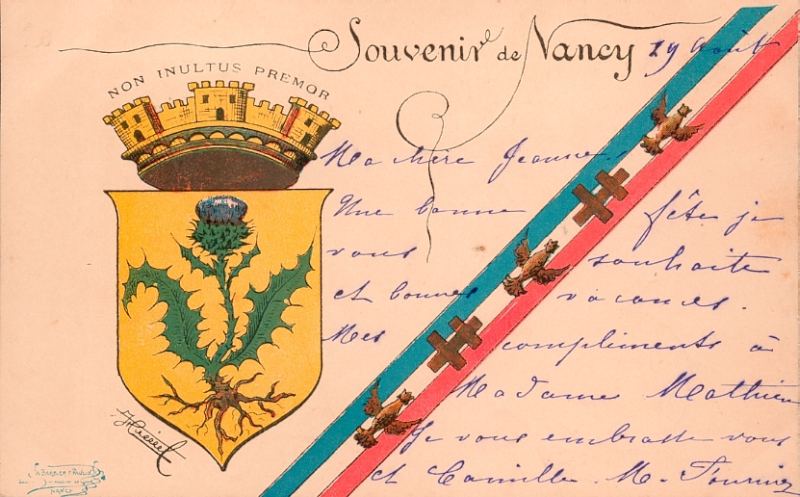 Souvenir de Nancy 19 Août
NON INULTUS PREMOR
Ma chère Jeanne.
Une bonne fête je
vous souhaite
et bonnes vacances.
Mes compliments à
Madame Mathieu
Je vous embrasse vous
et Camille. M. Fournier
NANCY